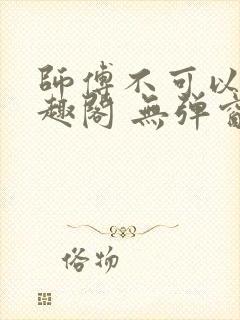 師傅不可以
趣閣 無彈窗
俗物